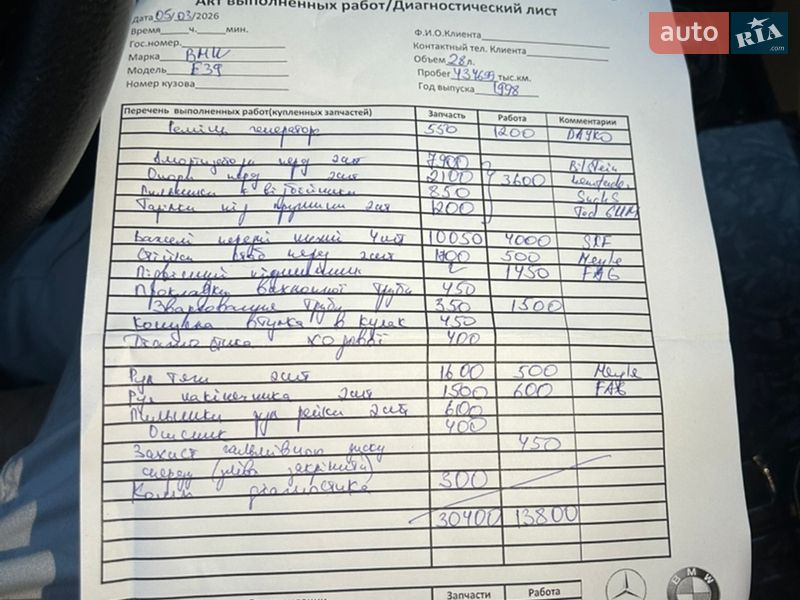 Акт выполненных работ/Диагностический лист
auto RIA .com
Дата 05/03/2026
Время ч. мин.
Гос.номер.
Марка BMW
Модель E39
Номер кузова
Ф.И.О.Клиента
Контактный тел. Клиента
Объем 2.8 л.
Пробег тыс.км.
Год выпуска 1998
Перечень выполненных работ(купленных запчастей) Запчасть Работа Комментарии
Ремінь генератор 550 1200 DAYKO
Амортизатори перед 2шт 7900 Bilstein
Опори перед 2шт 2100 3600
Пильники к відбійники 850 Sachs
Тарілки під пружини 2шт 1200
Важелі передні нижні 4шт 10050 4000 SRF
Стійки стаб перед 2шт 500 Meyle
Підвісний підшипник 1450 FAG
Прокладка вихлопної труби 450
Зварювання труби 350 1500
Конусна втулка в кулак 450
Діагностика ходової 400
Рул тяги 2шт 1600 500 Meyle
Рул накінечника 2шт 1500 600 FAG
Пильники рул рейки 2шт 600
400
Захист гальмівного диску 450
спереду (ліва закріпити)
Комп діагностика 300
30400 13800
Запчасти Работа
BMW